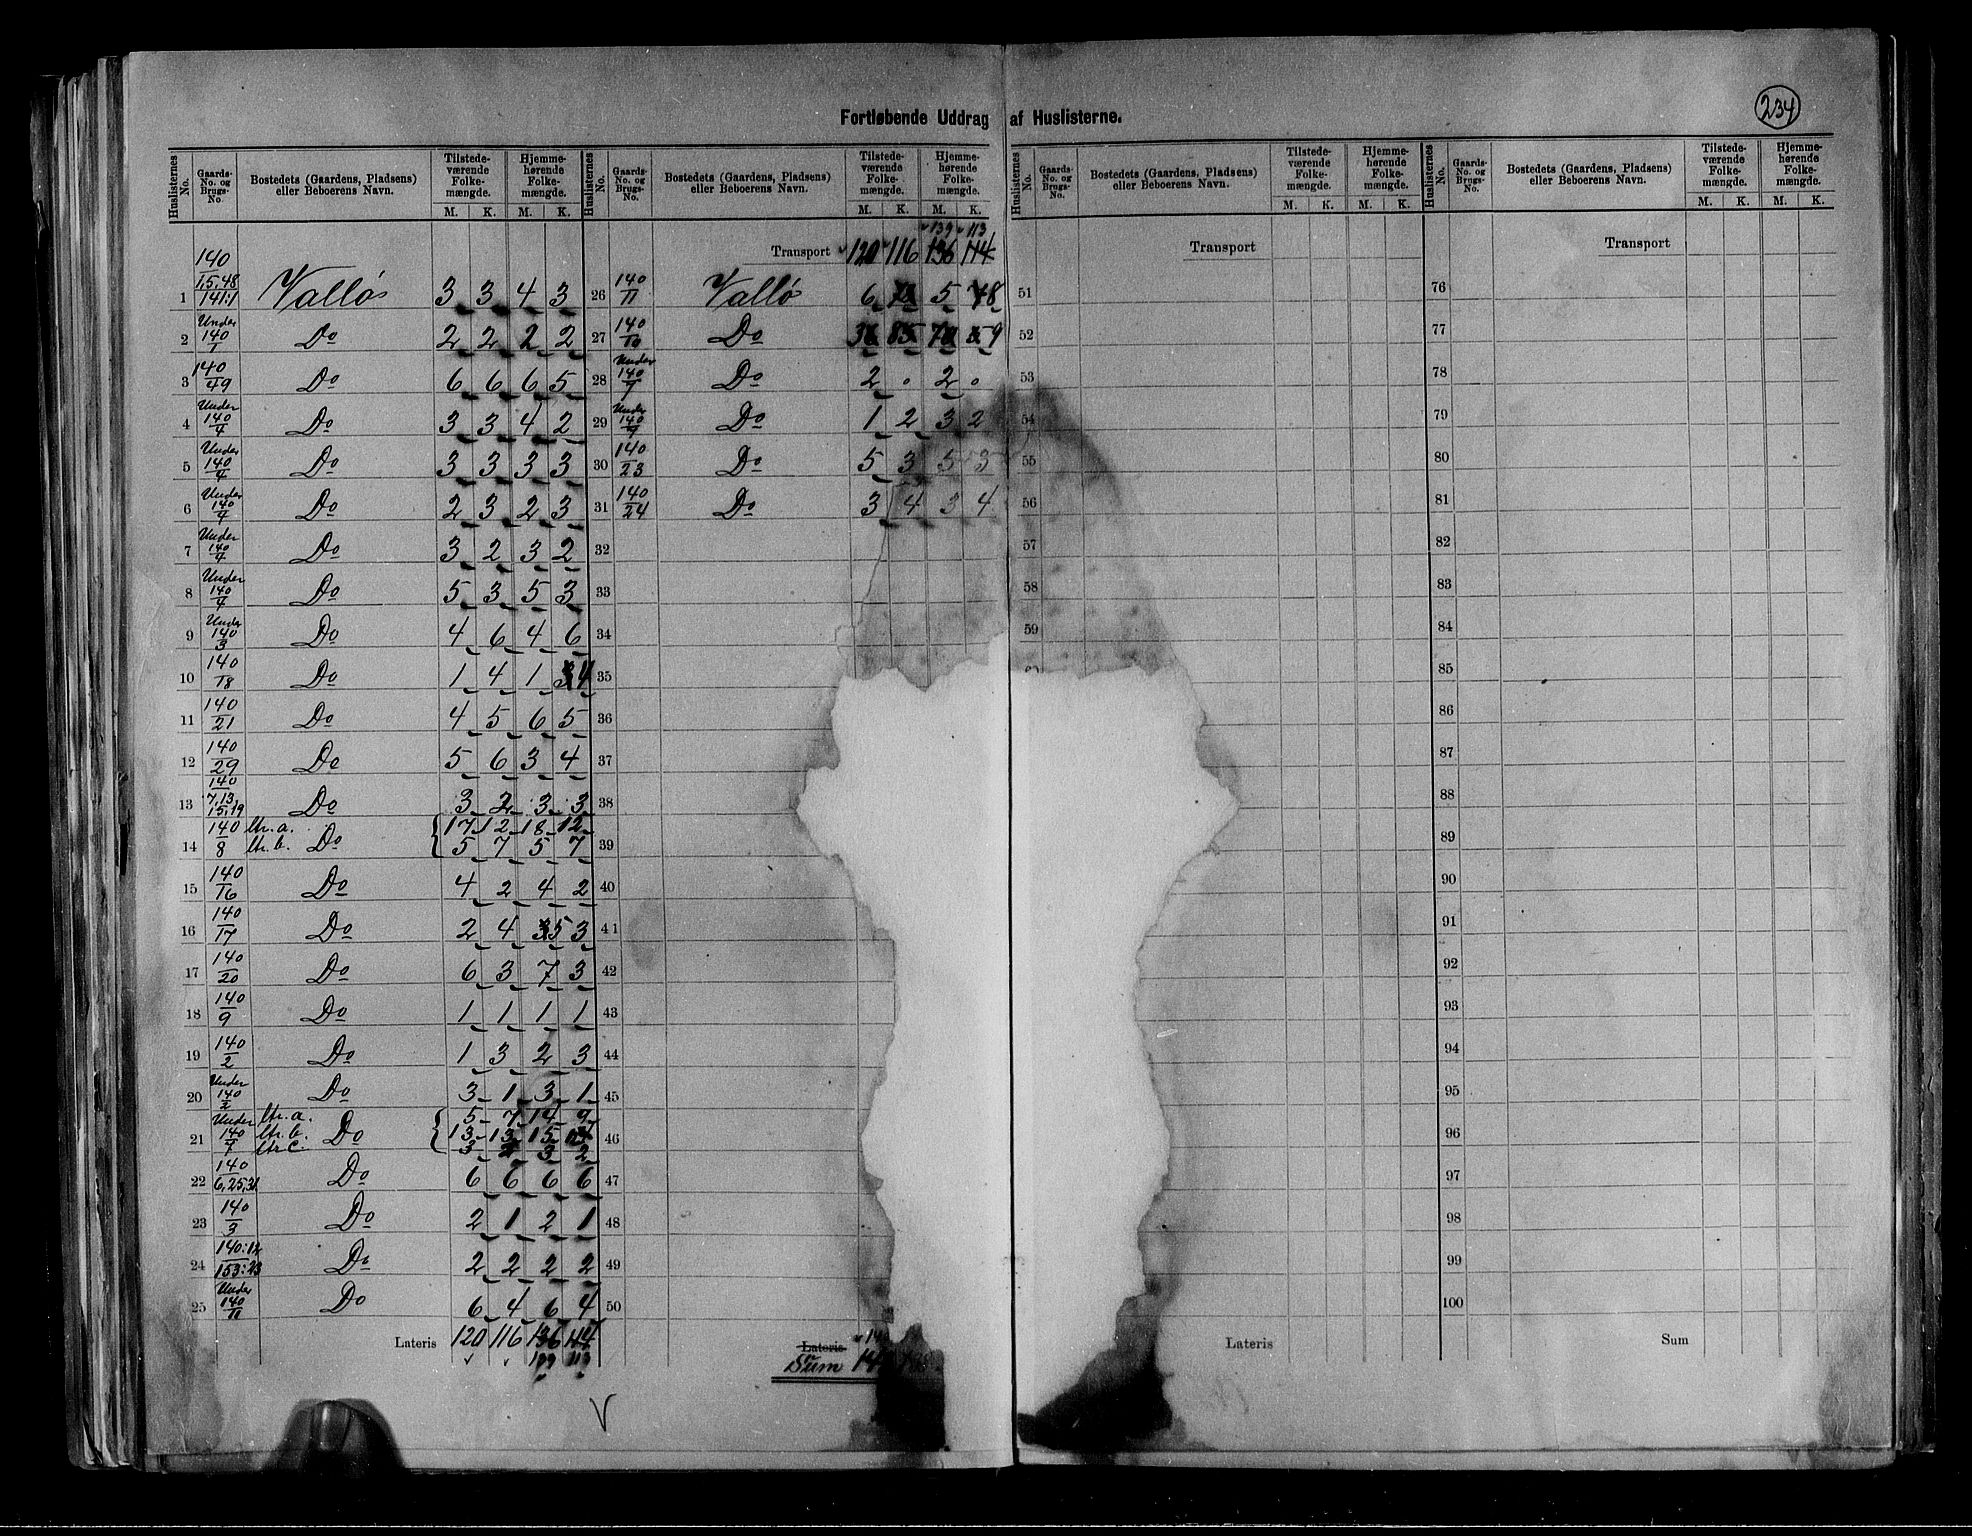 Fortløbende Uddrag af Huslisterne.
234
Huslisternes No. Gaards-No. og Brugs-No. Bostedets (Gaardens, Pladsens) eller Beboerens Navn. Tilstedeværende Folkemængde. M. K. Hjemmehørende Folkemængde. M. K.
1 140/1,5,48 141:1 Vallö 3 3 4 3
2 Under 140/1 Do 2 2 2 2
3 140/49 Do 6 6 6 5
4 Under 140/4 Do 3 3 4 2
5 Under 140/4 Do 3 3 3 3
6 Under 140/4 Do 2 3 2 3
7 Under 140/4 Do 3 2 3 2
8 Under 140/4 Do 5 3 5 3
9 Under 140/3 Do 4 6 4 6
10 140/18 Do 1 4 1 4
11 140/21 Do 4 5 6 5
12 140/29 Do 5 6 3 4
13 140/7,13,15,19 Do 3 2 3 3
14 140/8 ltr. a. Do 17 12 18 12
ltr. b. 5 7 5 7
15 140/16 Do 4 2 4 2
16 140/17 Do 2 4 5 3
17 140/20 Do 6 3 7 3
18 140/9 Do 1 1 1 1
19 140/2 Do 1 3 2 3
20 Under 140/2 Do 3 1 3 1
21 Under 140/7 ltr. a. Do 5 7 14 9
ltr. b. 13 13 15
ltr. c. 3 3 2
22 140/6,25,31 Do 6 6 6 6
23 140/3 Do 2 1 2 1
24 140:12 153:23 Do 2 2 2 2
25 Under 140/11 Do 6 4 6 4
Lateris 120 116 136 114
139 113
Huslisternes No. Gaards-No. og Brugs-No. Bostedets (Gaardens, Pladsens) eller Beboerens Navn. Tilstedeværende Folkemængde. M. K. Hjemmehørende Folkemængde. M. K.
139 113
Transport 120 116 136 114
26 140/11 Vallö 6 5 8
27 140/10 Do
28 Under 140/7 Do 2 0 2 0
29 Under 140/9 Do 1 2 3 2
30 140/23 Do 5 3 5 3
31 140/24 Do 3 4 3 4
32
33
34
35
36
37
38
39
40
41
42
43
44
45
46
47
48
49
50
Lateris
Sum
Huslisternes No. Gaards-No. og Brugs-No. Bostedets (Gaardens, Pladsens) eller Beboerens Navn. Tilstedeværende Folkemængde. M. K. Hjemmehørende Folkemængde. M. K.
Transport
51
52
53
54
55
56
57
58
59
Lateris
Huslisternes No. Gaards-No. og Brugs-No. Bostedets (Gaardens, Pladsens) eller Beboerens Navn. Tilstedeværende Folkemængde. M. K. Hjemmehørende Folkemængde. M. K.
Transport
76
77
78
79
80
81
82
83
84
85
86
87
88
89
90
91
92
93
94
95
96
97
98
99
100
Sum